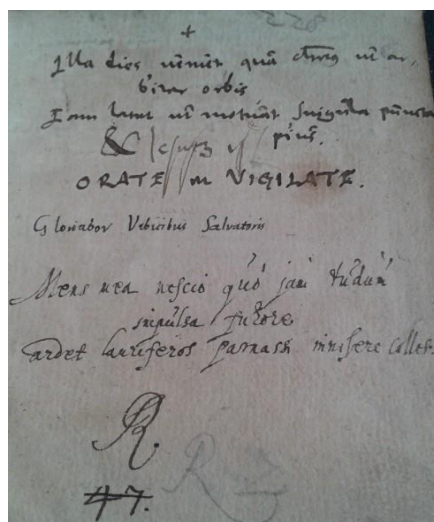 +
Illa dies veniet quâ ut ar,
biter orbis
latet ut singula puncta
&
pius.
ORATE VIGILATE.
Gloriabor Vibicibus Salvatoris
Mens mea nescio quó jam tudum
impulsa furore
ardet lauriferos parnassi invisere colles.
R.
47.
R